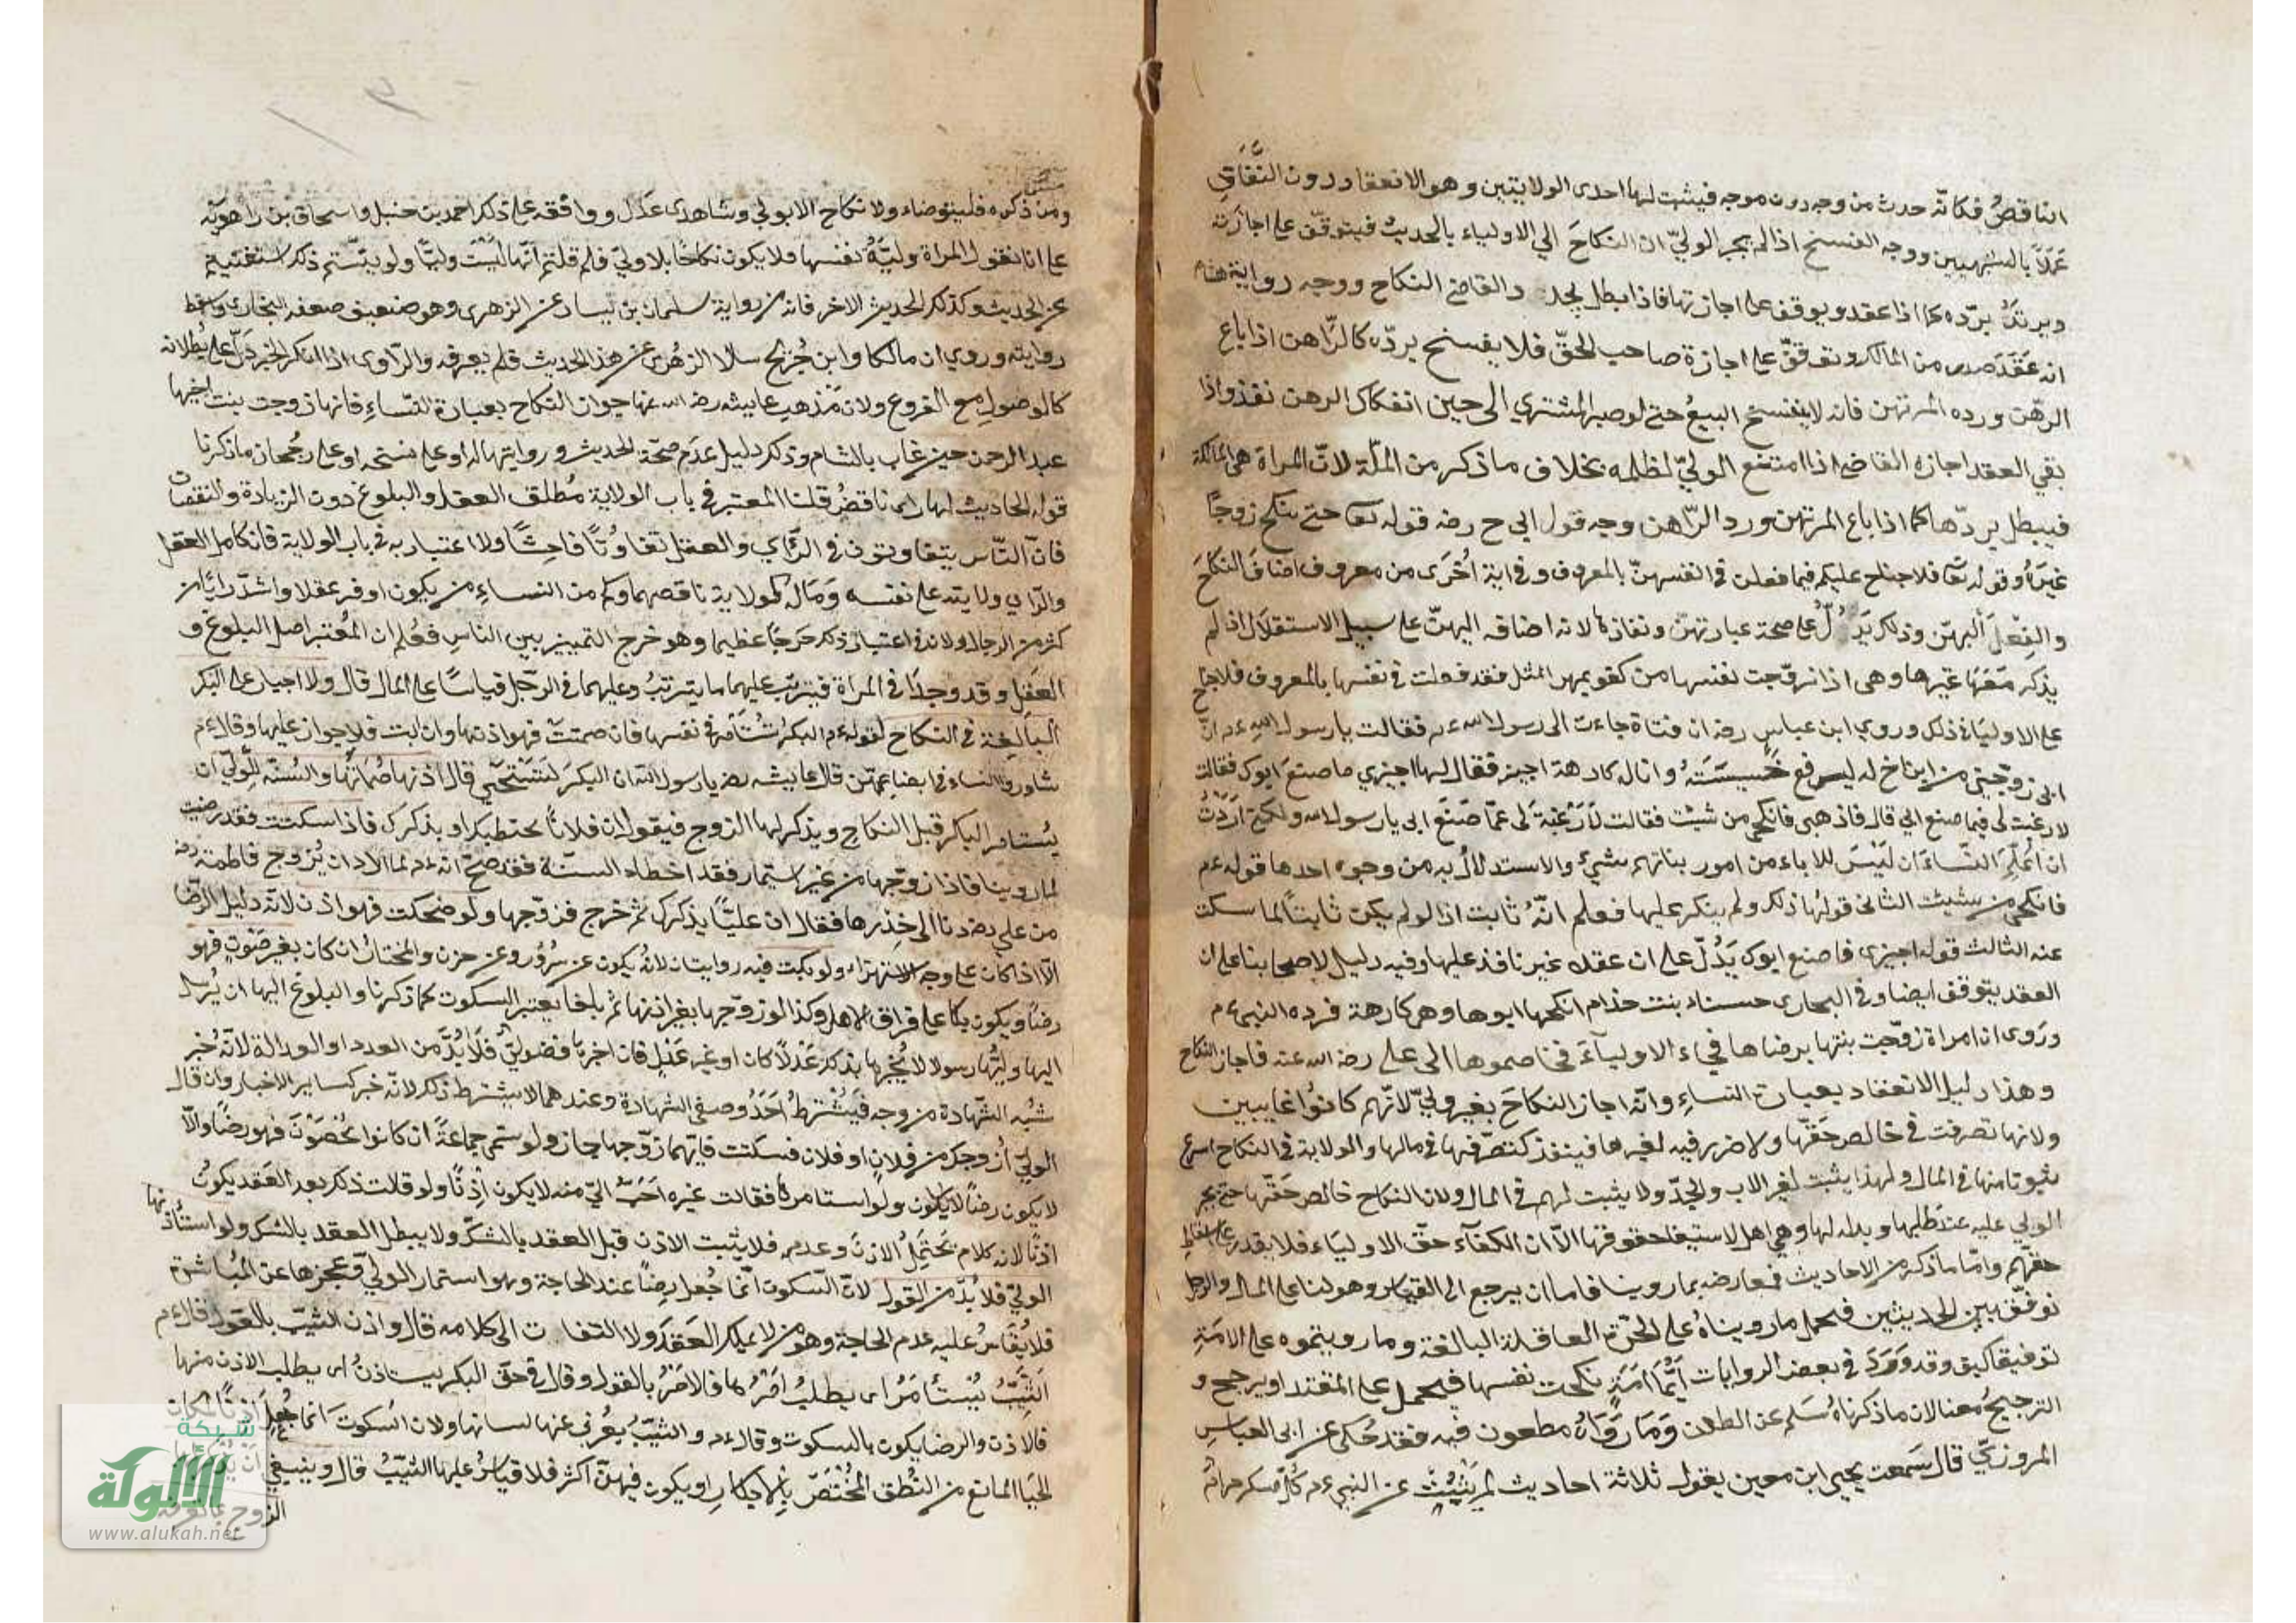 الناقص فكانه حدث من وجه دون موجه فيثبت لها احدى الولايتين وهو الانعقاد دون النفاذ
عملا بالشبهين ووجه الفسخ اذا لم يجز الولي ان النكاح الى الاولياء بالحديث فيتوقف على اجازته
ويرتد برده كما اذا عقد ويوقف على اجازتها فاذا بطل يجدد القاضي النكاح ووجه رواية هشام
انه عقد صدر من المالك وتوقف على اجازة صاحب الحق فلا يفسخ برده كالراهن اذا باع
الرهن ورده المرتهن فانه لا ينفسخ البيع حتى لو صبر المشتري الى حين انفكاك الرهن نفذ واذا
بقي العقد اجازه القاضي اذا امتنع الولي لظلمه بخلاف ما ذكر من المسئلة لان المراة هي المالكة
فيبطل بردها كما اذا باع المرتهن ورد الراهن وجه قول ابي ح رضه قوله تعا حتى ينكح زوجا
غيره وقوله تعا فلا جناح عليكم فيما فعلن في انفسهن بالمعروف وفي اية اخرى من معروف اضاف النكاح
والفعل اليهن وذلك يدل على صحة عبارتهن ونفاذها لانه اضافه اليهن على سبيل الاستقلال اذ لم
يذكر معها غيرها وهي اذا زوجت نفسها من كفو بمهر المثل فقد فعلت في نفسها بالمعروف فلا جناح
على الاولياء في ذلك وروي ابن عباس رضه ان فتاة جاءت الى رسول الله عم فقالت يا رسول الله عم ان
ابي زوجني من ابن اخ له ليرفع خسيسته وانا له كارهة اجيز فقال لها اجيزي ما صنع ابوك فقالت
لا رغبت لي فيما صنع ابي قال فاذهبي فانكحي من شئت فقالت لا رغبة لي عما صنع ابي يا رسول الله ولكني اردت
ان اعلم النساء ان ليس للاباء من امور بناتهم شيء والاستدلال به من وجوه احدها قوله عم
فانكحي من شئت الثاني قولها ذلك ولم ينكر عليها فعلم انه ثابت اذ لو لم يكن ثابتا لما سكت
عنه الثالث قوله اجيزي ما صنع ابوك يدل على ان عقده غير نافذ عليها وفيه دليل لاصحابنا على ان
العقد يتوقف ايضا وفي البخاري خنساء بنت خذام انكحها ابوها وهي كارهة فرده النبي عم
وروى ان امراة زوجت بنتها برضاها فجاء الاولياء فخاصموها الى علي رضه الله عنه فاجاز النكاح
وهذا دليل الانعقاد بعبارة النساء وانه اجاز النكاح بغير ولي لانهم كانوا غايبين
ولانها تصرفت في خالص حقها ولا ضرر فيه لغيرها فينفذ كتصرفها في مالها والولاية في النكاح اسرع
ثبوتا منها في المال ولهذا يثبت لغير الاب والجد ولا يثبت لهم في المال ولان النكاح خالص حقها حتى يجبر
الولي عليه عند طلبها وبدله لها وهي اهل لاستيفاء حقوقها الا ان الكفاءة حق الاولياء فلا يقدر على اسقاط
حقهم واما ما ذكر من الاحاديث فمعارضه بما روينا فاما ان يرجع الى القياس وهو لنا على المال والرجل
نوفق بين الحديثين فيحمل ما رويناه على الحرة العاقلة البالغة وما رويتموه على الامة
توفيقا كيف وقد ورد في بعض الروايات ايما امة نكحت نفسها فيحمل على المقيد او يرجح و
الترجيح معنا لان ما ذكرناه سلم عن الطعن وما رواه مطعون فيه فقد حكي عن ابي العباس
المروزي قال سمعت يحيى ابن معين يقول ثلاثة احاديث لم يثبت عن النبي عم كل مسكر حرام
ومن ذكره فليتوضاء ولا نكاح الا بولي وشاهدي عدل ووافقه على ذلك احمد بن حنبل واسحاق بن راهويه
على انا نقول المراة ولية نفسها فلا يكون نكاحا بلا ولي فلم قلتم انها ليست وليا ولو بينتم ذلك استغنيتم
عن الحديث وكذلك الحديث الاخر فانه من رواية سليمان بن يسار عن الزهري وهو ضعيف ضعفه البخاري وسقط
روايته وروي ان مالكا وابن جريج سالا الزهري عن هذا الحديث فلم يعرفه والراوي اذا انكر الخبر دل على بطلانه
كالوصول مع الفروع ولان مذهب عايشه رضه الله عنها جواز النكاح بعبارة النساء فانها زوجت بنت اخيها
عبد الرحمن حين غاب بالشام وذلك دليل عدم صحة الحديث وروايتها له او على نسخه او على رجحان ما ذكرنا
قوله الحاديث لها راي ناقص قلنا المعتبر في باب الولاية مطلق العقل والبلوغ دون الزيادة والنقصان
فان الناس يتفاوتون في الراي والعقل تفاوتا فاحشا ولا اعتبار به في باب الولاية فان كامل العقل
والراي ولايته على نفسه وماله كولاية ناقصهما وكم من النساء من يكون اوفر عقلا واشد رايا من
كثير من الرجال ولان في اعتبار ذلك حرجا عظيما وهو خرج التمييز بين الناس فعلم ان المعتبر اصل البلوغ و
العقل وقد وجدا في المراة فيترتب عليهما ما يترتب وعليهما في الرجل قياسا على المال قال ولا اجبار على البكر
البالغة في النكاح لقوله عم البكر تستامر في نفسها فان صمتت فهو اذنها وان ابت فلا جواز عليها وقال عم
شاوروا النساء في ابضاعهن قال عايشه رضه يا رسول الله ان البكر لتستحي قال اذنها صماتها والسنة للولي ان
يستامر البكر قبل النكاح ويذكر لها الزوج فيقول ان فلانا يخطبك او يذكرك فاذا سكتت فقد رضيت
لما روينا فاذا زوجها من غير استيمار فقد اخطاء السنة فقد صح انه عم لما اراد ان يزوج فاطمة رضه
من علي رضه دنا الى خدرها فقال ان عليا يذكرك ثم خرج فزوجها ولو ضحكت فهو اذن لانه دليل الرضا
الا اذا كان على وجه الاستهزاء ولو بكت فيه روايتان لانه يكون عن سرور وعن حزن والمختار ان كان بغير صوت فهو
رضا ويكون بكاء على فراق الاهل وكذا لو زوجها بغير اذنها ثم بلغها يعتبر السكوت كما ذكرنا والبلوغ اليها ان يرسل
اليها وليها رسولا لا يخبرها بذلك عدلا كان او غير عدل فان اخبرها فضولي فلا بد من العدد او العدالة لانه خبر
شبه الشهادة من وجه فيشترط احد وصفي الشهادة وعندهما لا يشترط ذلك لانه خبر كساير الاخبار وان قال
الولي ازوجك من فلان او فلان فسكتت فايهما زوجها جاز ولو سمى جماعة ان كانوا يحصون فهو رضا والا
لا يكون رضا لا يكون ولو استامرها فقالت غيره احب الي منه لا يكون اذنا ولو قلت ذلك بعد العقد يكون
اذنا لانه كلام يحتمل الاذن وعدمه فلا يثبت الاذن قبل العقد بالشك ولا يبطل العقد بالشك ولو استاذنها
الولي فلا بد من القول لان السكوت انما جعل رضا عند الحاجة وهو استيمار الولي وعجزها عن المباشرة
فلا يقاس عليه عدم الحاجة وهو من لا يملك العقد ولا التفات الى كلامه قال واذن الثيب بالقول قال عم
الثيب تستامر اي يطلب امرها فالامر بالقول وقال في حق البكر يستاذن اي يطلب الاذن منها
فالاذن والرضا يكون بالسكوت وقال عم والثيب يعرب عنها لسانها ولان السكوت انما جعل اذنا لمكان
الحيا المانع من النطق المختص بالابكار او يكون فيهن اكثر فلا قياس عليها الثيب قال وينبغي ان يذكر لها
الزوج
شبكة
الألوكة
www.alukah.net